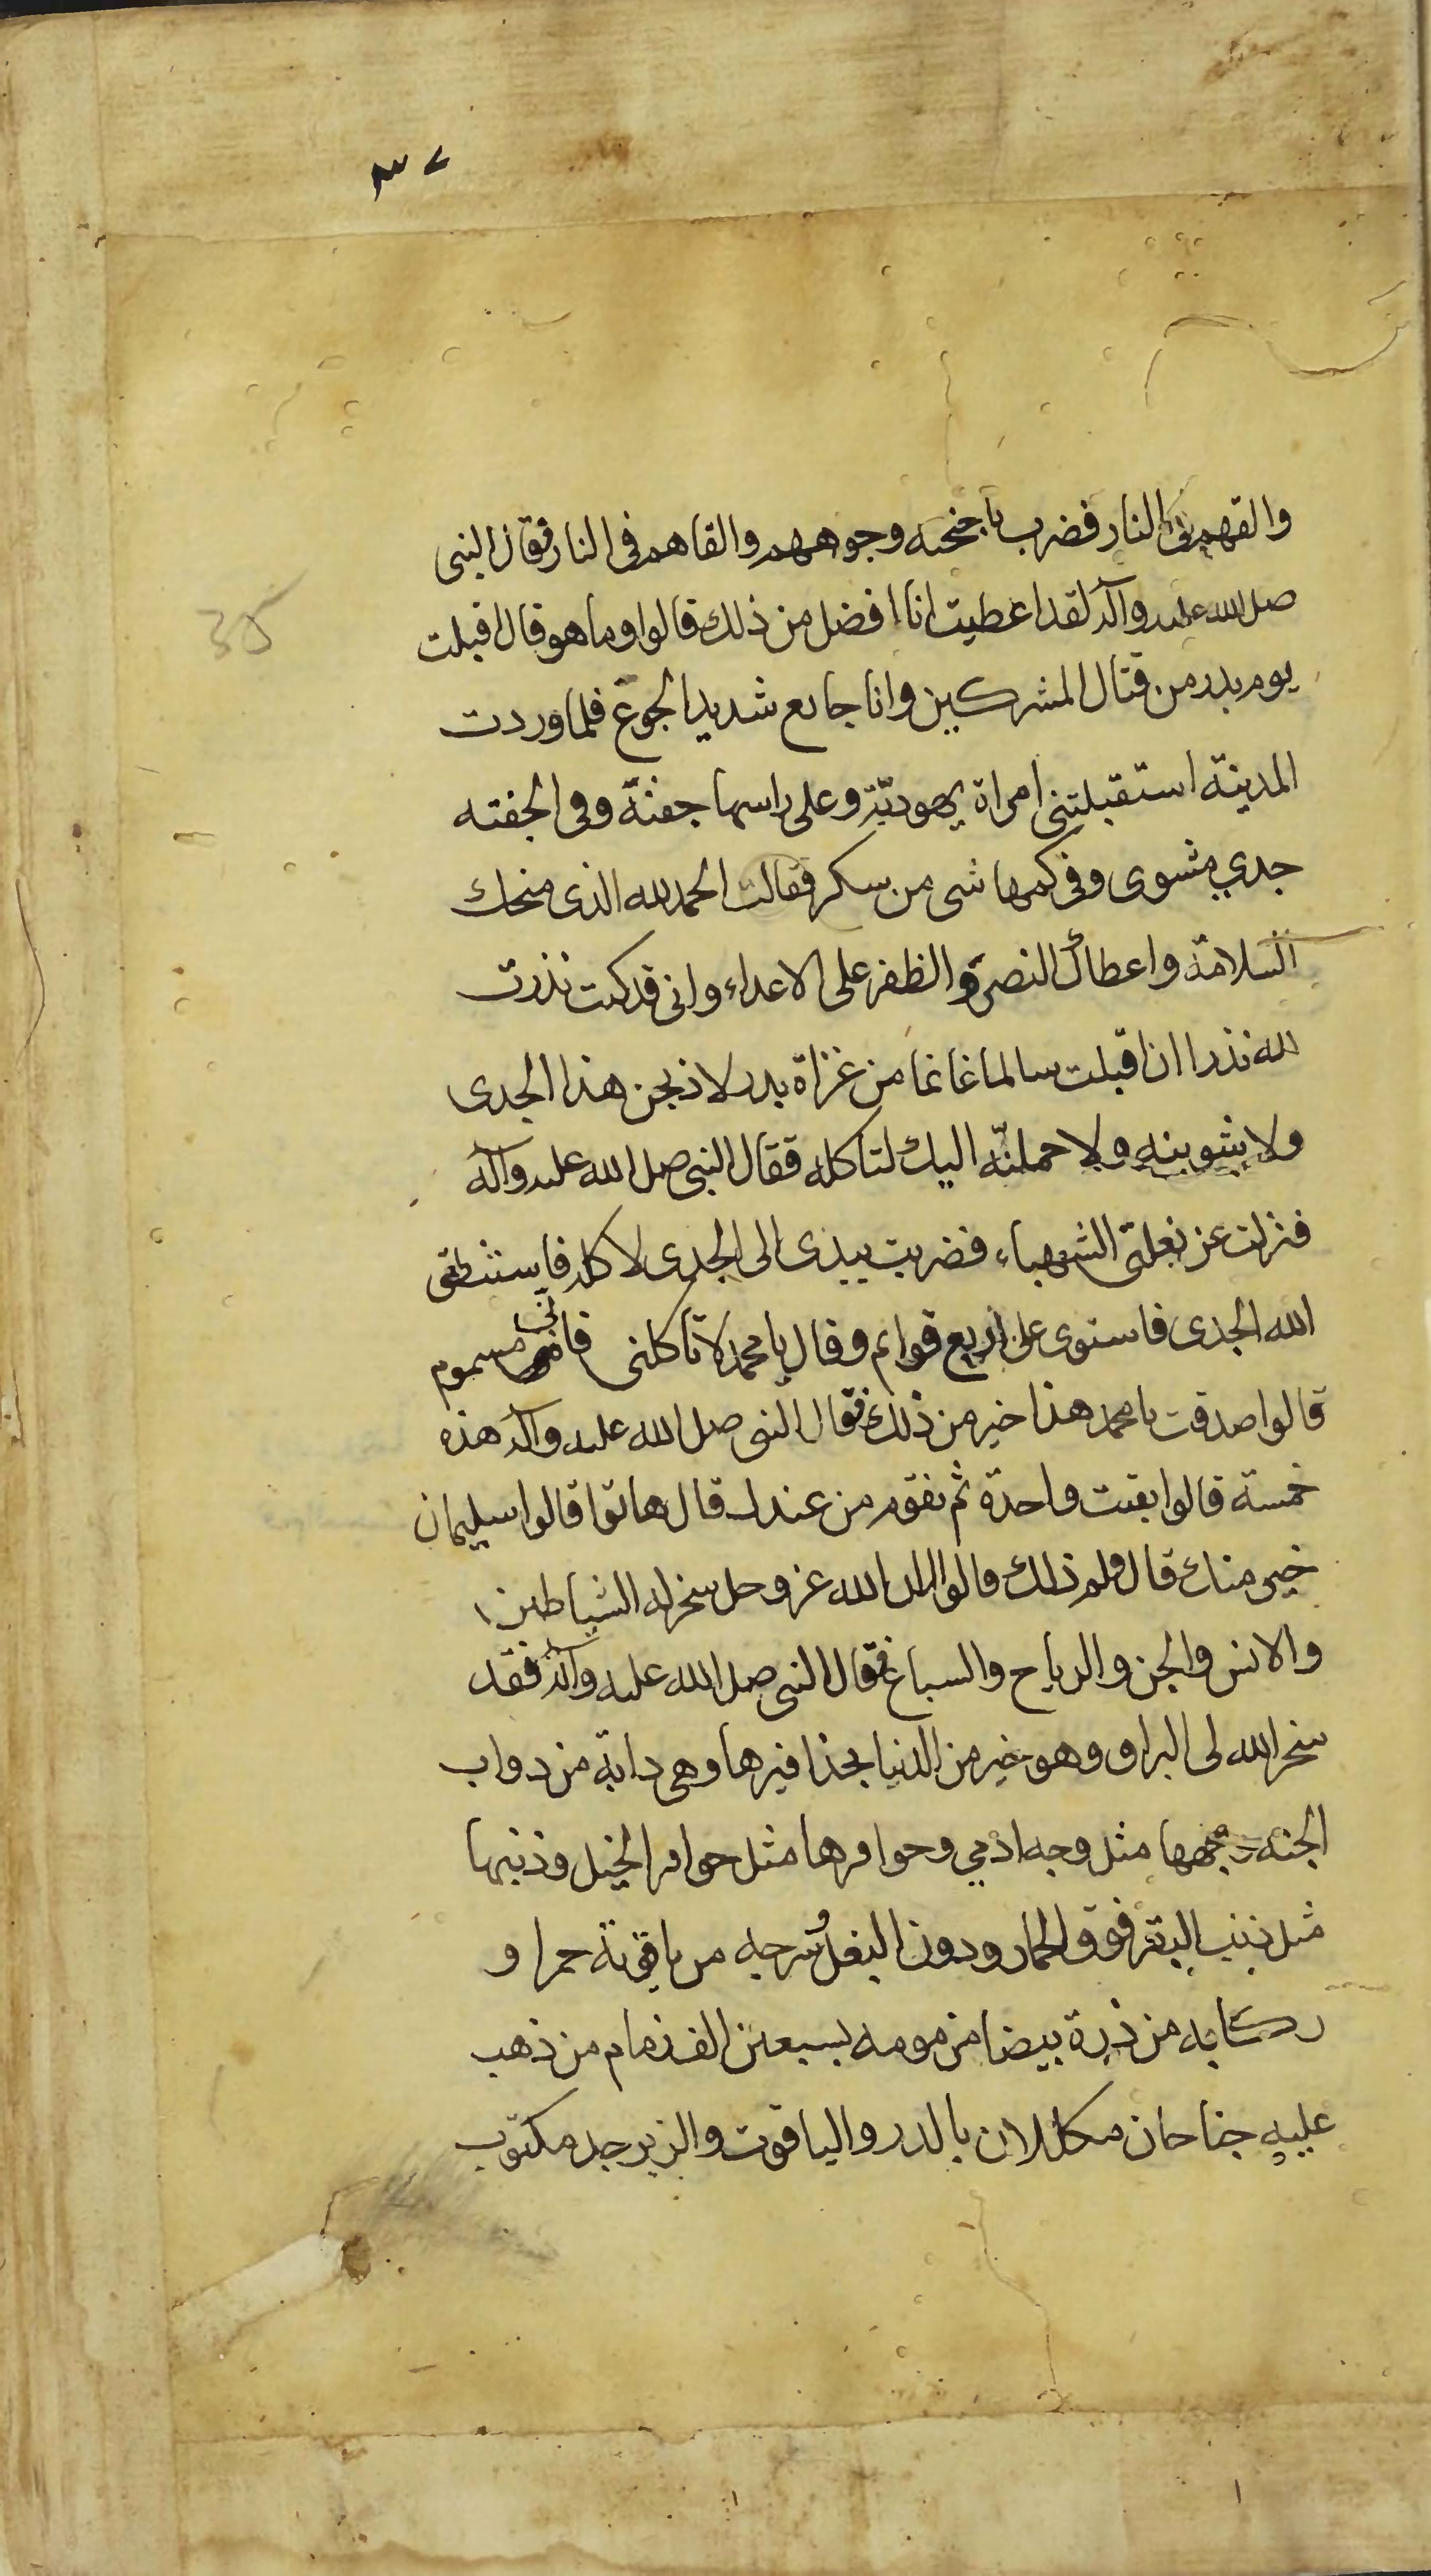 ٣٧
والقهم في النار فضرب باجنحته وجوههم والقاهم فى النار فقال النبى
صلى الله عليه وآله لقد اعطيت انا افضل من ذلك قالوا وما هو قال اقبلت
35
يوم بدر من قتال المشركين وانا جايع شديد الجوع فلما وردت
المدينة استقبلتنى امراة يهوديّة وعلى راسها جفنة وفى الجفنه
جدي مشوى وفى كمها شى من سكر فقالت الحمد لله الذى منحك
السلامة واعطاك النصر والظفر على الاعداء وانى قد كنت نذرت
لله نذرا ان اقبلت سالما غانما من غزاة بدر لاذبحن هذا الجدى
ولاشوينه ولاحملنّه اليك لتاكله فقال النبى صلى الله عليه وآله
فنزلت عن بغلتى الشهباء فضربت بيدى الى الجدى لاكله فاستنطق
الله الجدى فاستوى على اربع قوايم وقال يا محمد لا تاكلنى فانى مسموم
قالوا صدقت يا محمد هذا خير من ذلك فقال النبى صلى الله عليه وآله هذه
خمسة قالوا بقيت واحدة ثم نقوم من عندك قال هاتوا قالوا سليمان
خير منك قال ولم ذلك قالوا لان الله عز وجل سخر له الشياطين
والانس والجن والرياح والسباع فقال النبى صلى الله عليه وآله فقد
سخر الله لى البراق وهو خير من الدنيا بحذافيرها وهى دابة من دواب
الجنه وجهها مثل وجه ادمي وحوافرها مثل حوافر الخيل وذنبها
مثل ذنب البقر فوق الحمار ودون البغل سرجه من ياقوتة حمرا و
ركابه من درة بيضا مزمومه بسبعين الف زمام من ذهب
عليه جناحان مكللان بالدر والياقوت والزبرجد مكتوب